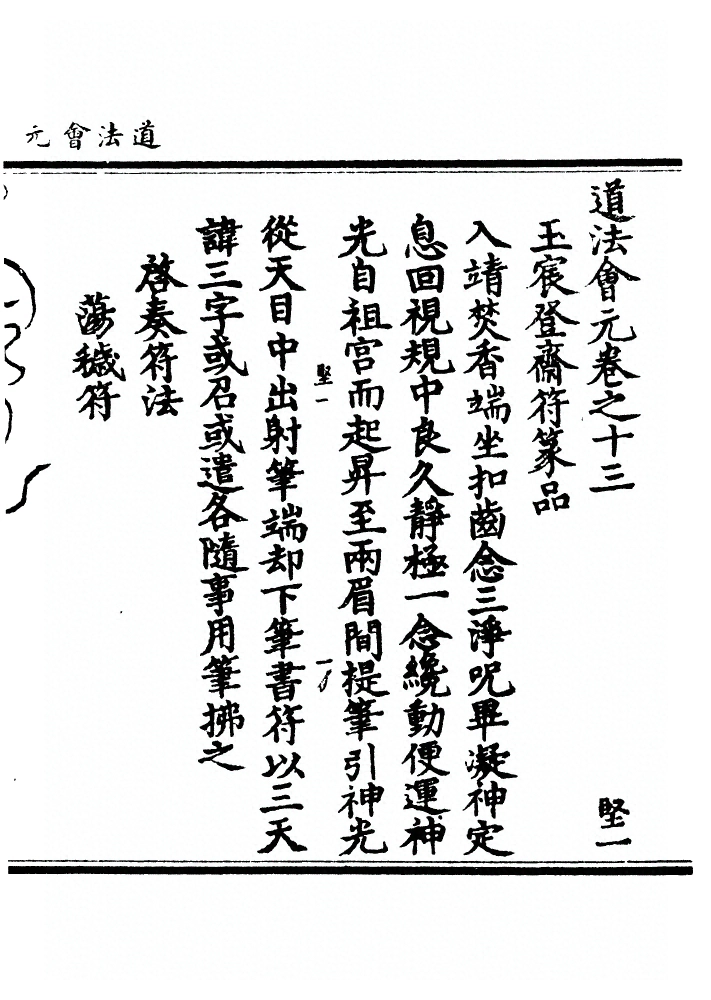 道法會元
道法會元卷之十三
堅一
玉宸登齋符篆品
入靖焚香端坐扣齒念三淨呪畢凝神定
息回視規中良久靜極一念纔動便運神
光自祖宮而起昇至兩眉間提筆引神光
堅一
從天目中出射筆端却下筆書符以三天
諱三字或召或遣各隨事用筆拂之
啓奏符法
蕩穢符